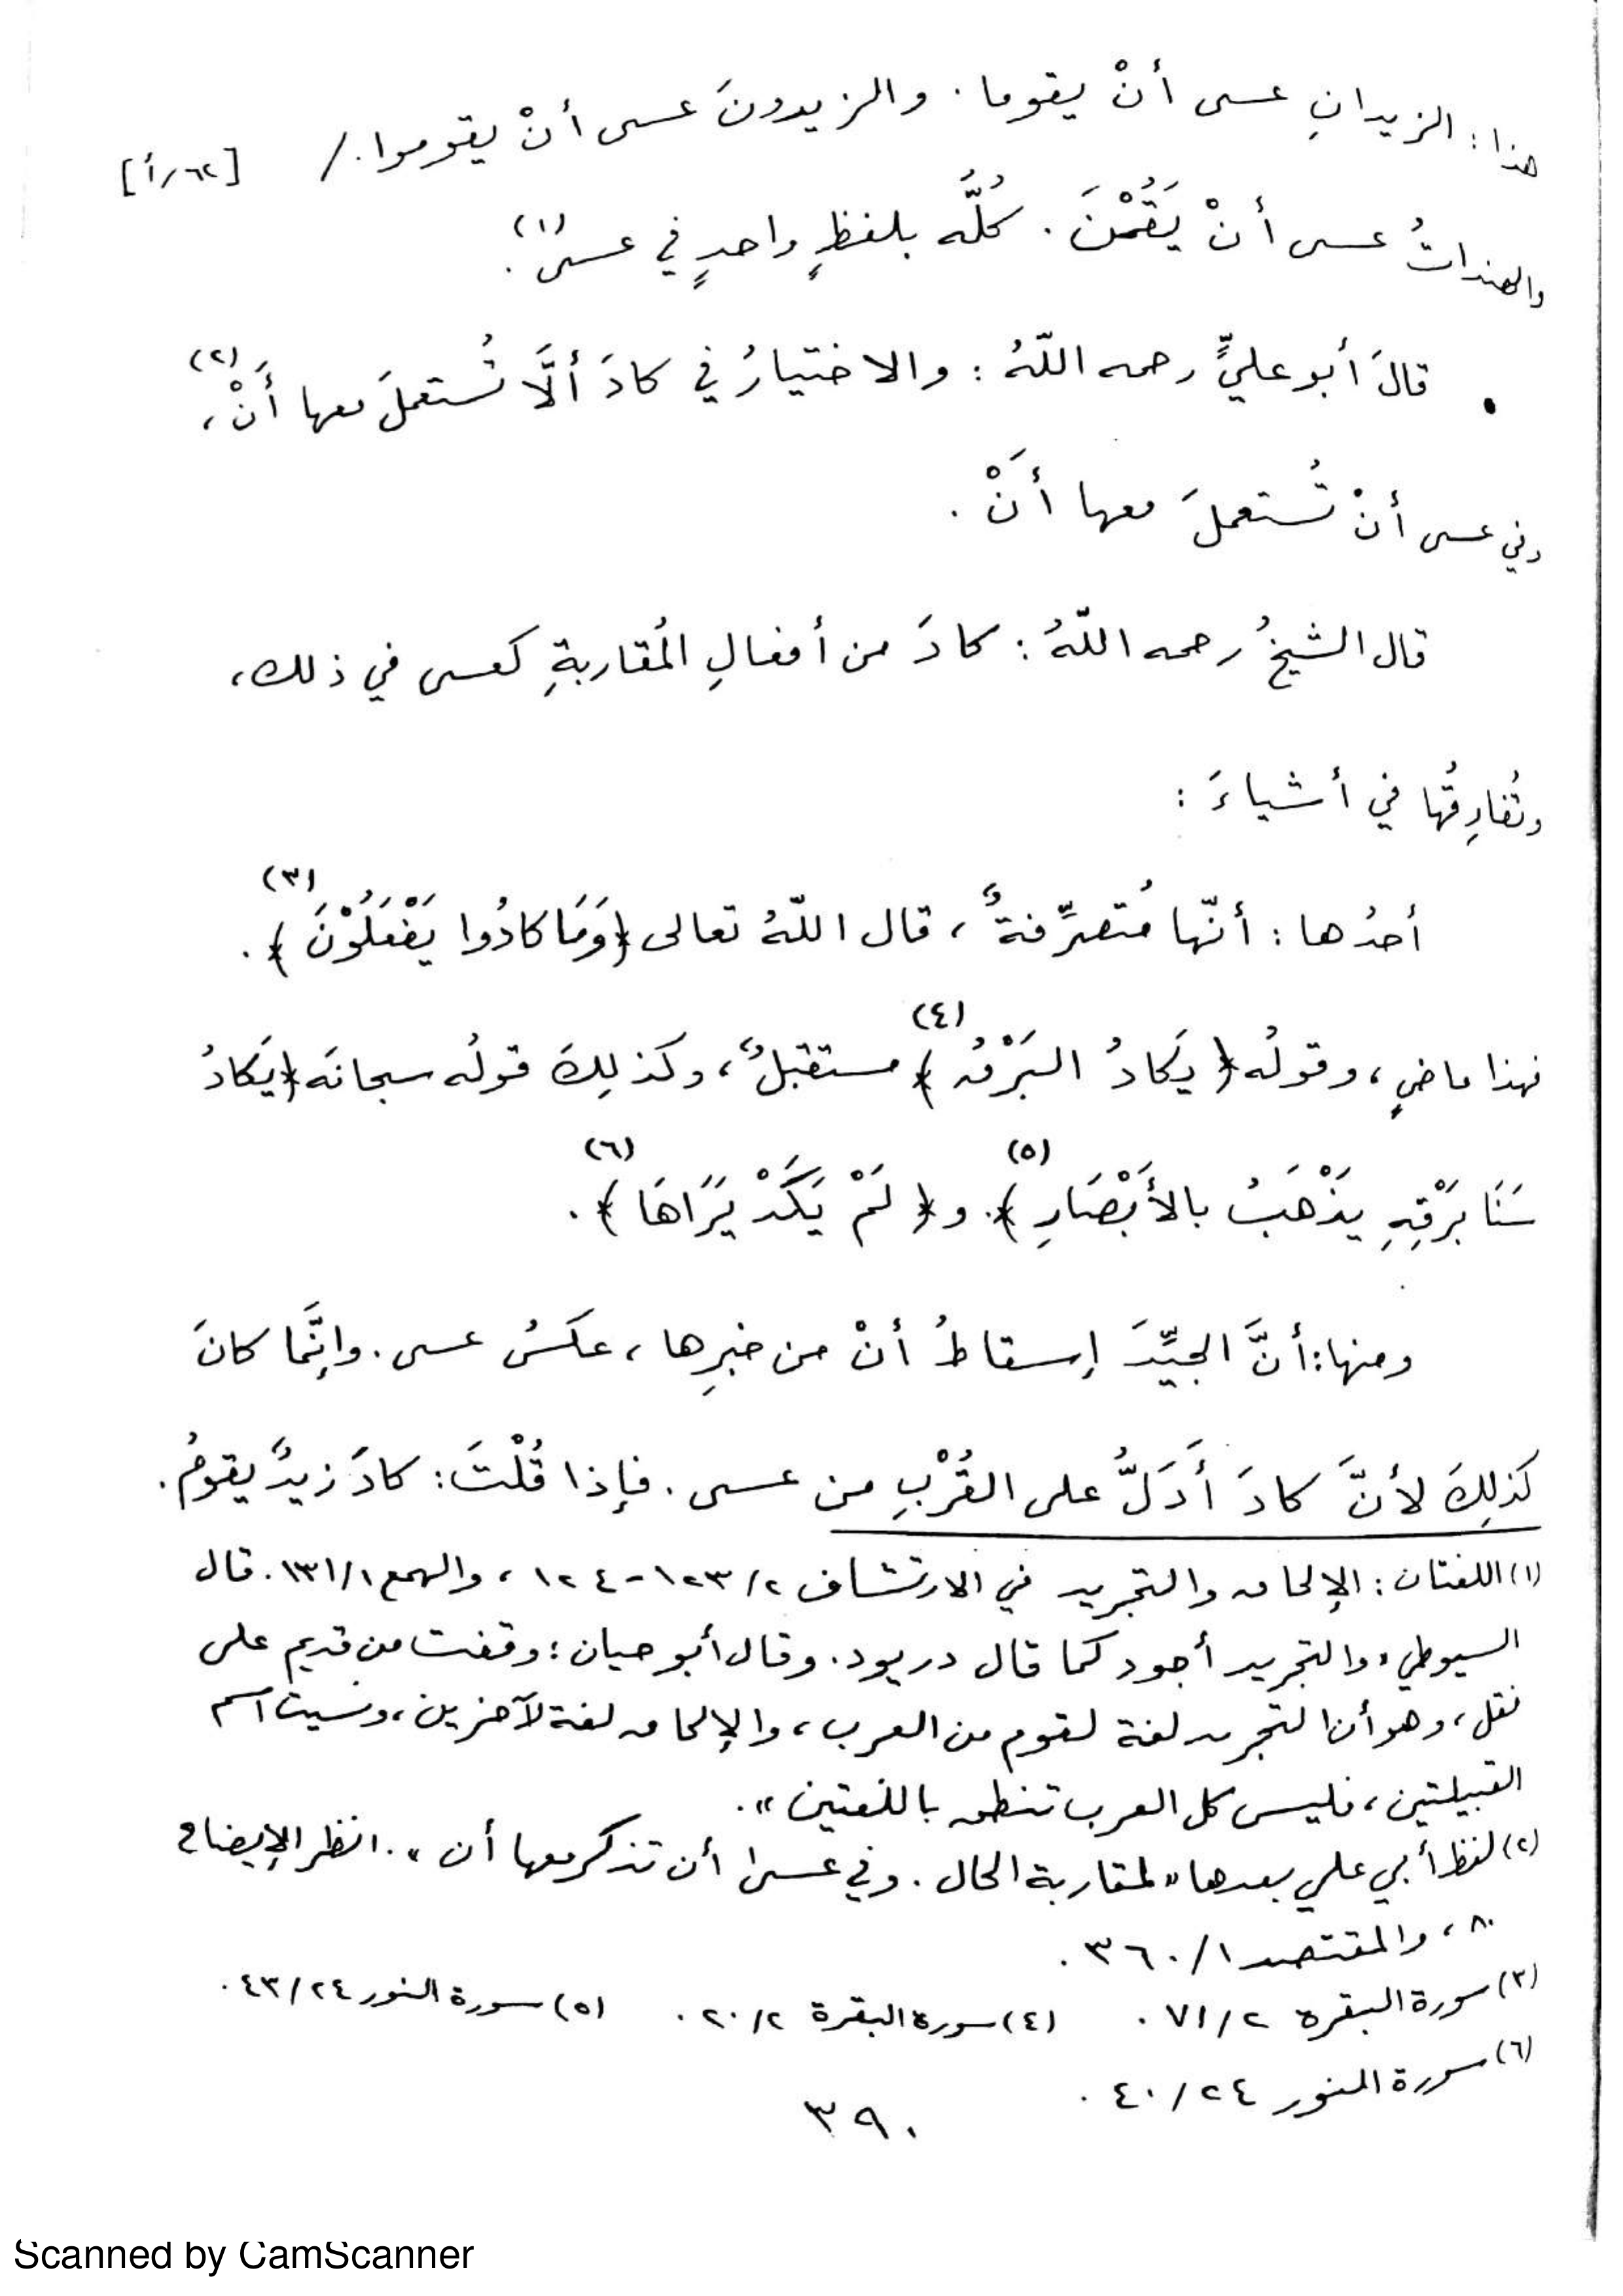 هذا: الزيدانِ عسى أنْ يقوما. والزيدونَ عسى أنْ يقوموا. / [٦٢/أ]
والهنداتُ عسى أنْ يَقُمْنَ. كُلُّه بلفظٍ واحدٍ في عسى(١).
• قالَ أبو عليٍّ رحمه اللّهُ: والاختيارُ في كادَ ألَّا تُستعملَ معها أَنْ(٢)،
وفي عسى أنْ تُستعملَ معها أَنْ.
قال الشيخُ رحمه اللّهُ: كادَ من أفعالِ المُقاربةِ كعسى في ذلك،
وتُفارِقُها في أشياءَ:
أحدُها: أنّها مُتصرِّفةٌ، قال اللّهُ تعالى ﴿وَمَا كادُوا يَفْعَلُوْنَ﴾(٣).
فهذا ماضٍ، وقولُه ﴿يَكادُ البَرْقُ﴾(٤) مستقبلٌ، وكذلِكَ قولُه سبحانَه ﴿يَكادُ
سَنَا بَرْقِهِ يذْهَبُ بالأَبْصَارِ﴾(٥). و﴿لَمْ يَكَدْ يَرَاهَا﴾(٦).
ومنها: أنَّ الجيِّدَ إسقاطُ أنْ من خبرِها، عكسُ عسى. وإنَّما كانَ
كَذلِكَ لأنَّ كادَ أَدَلُّ على القُرْبِ من عسى. فإذا قُلْتَ: كادَ زيدٌ يقومُ.
(١) اللغتان: الإلحاق والتجريد في الارتشاف ٢/ ١٢٣-١٢٤، والهمع ١/ ١٣١. قال
السيوطي «والتجريد أجود كما قال دريود. وقال أبو حيان: وقفت من قديم على
نقل، وهو أن التجريد لغة لقوم من العرب، والإلحاق لغة لآخرين، ونسيت اسم
القبيلتين، فليس كل العرب تنطق باللغتين».
(٢) لفظ أبي علي بعدها «لمقاربة الحال. وفي عسى أن تذكر معها أن». انظر الإيضاح
٨٠، والمقتصد ١/ ٣٦٠.
(٣) سورة البقرة ٢/ ٧١. (٤) سورة البقرة ٢/ ٢٠. (٥) سورة النور ٢٤/ ٤٣.
(٦) سورة النور ٢٤/ ٤٠.
٣٩٠
Scanned by CamScanner